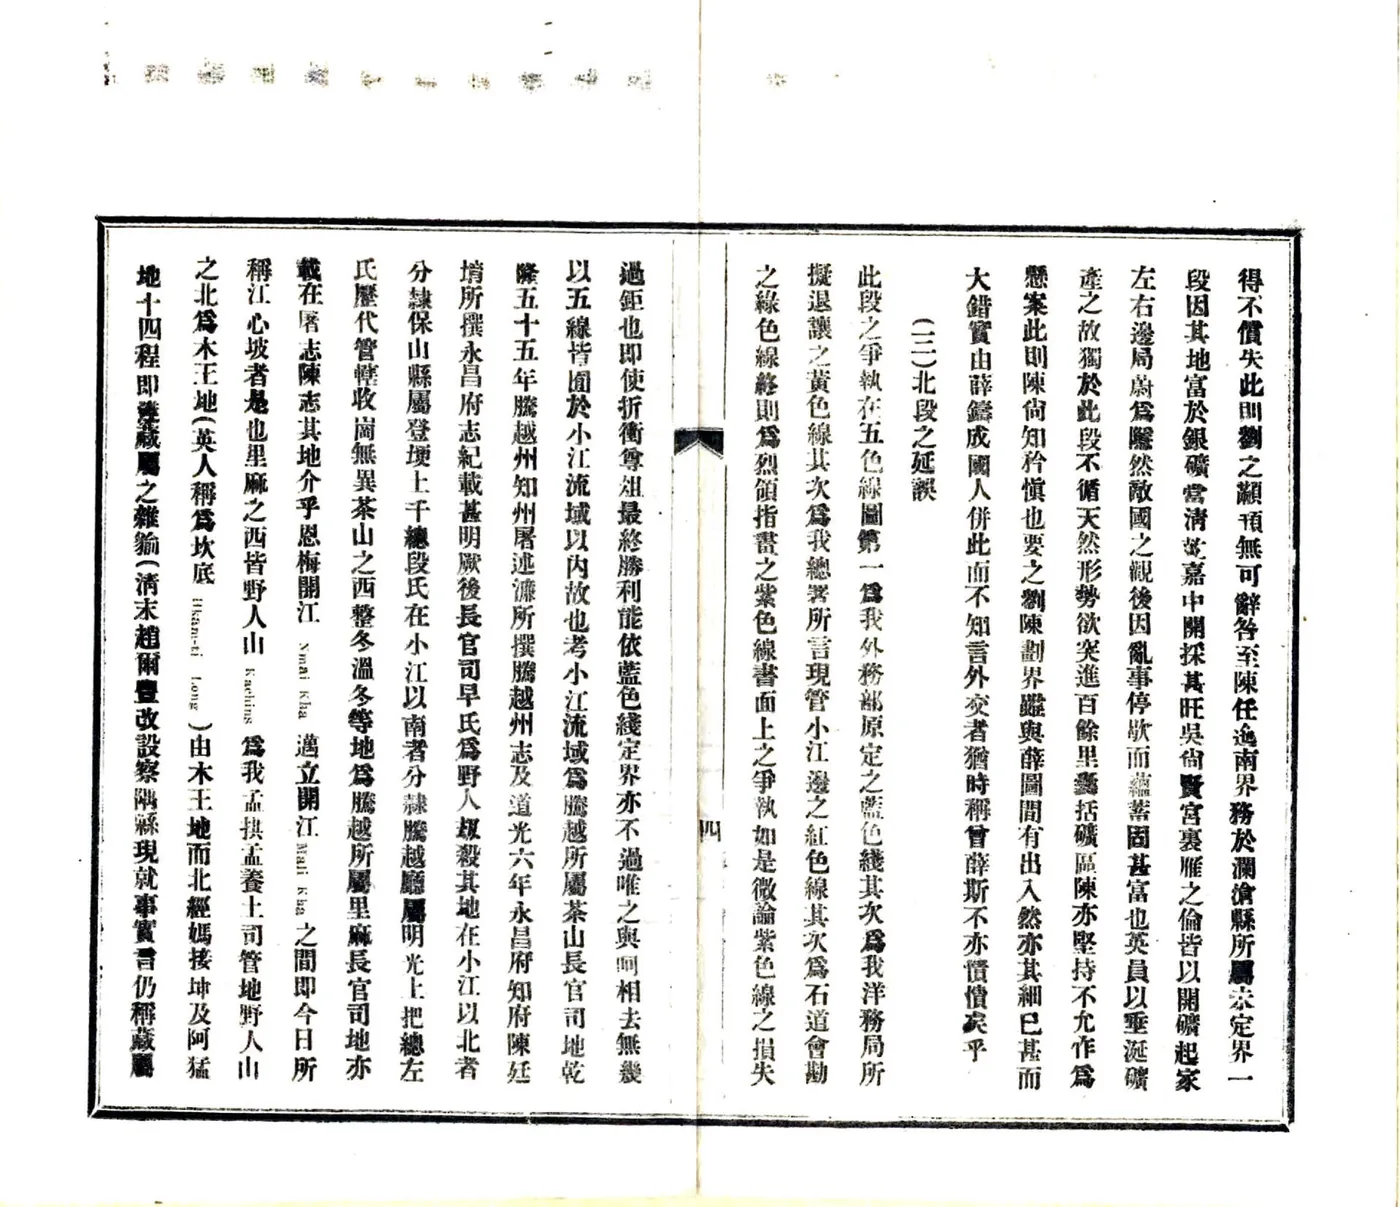 得不償失此則劉之顢頇無可辭咎至陳任逸南界務於瀾滄縣所屬未定界一
段因其地富於銀礦當清乾嘉中開採甚旺吳尙賢宮裏雁之倫皆以開礦起家
左右邊局蔚爲隱然敵國之觀後因亂事停歇而蘊蓄固甚富也英員以垂涎礦
產之故獨於此段不循天然形勢欲突進百餘里囊括礦區陳亦堅持不允作爲
懸案此則陳尙知矜愼也要之劉陳劃界雖與薛圖間有出入然亦其細已甚而
大錯實由薛鑄成國人併此而不知言外交者猶時稱曾薛斯不亦憒憒矣乎
(二)北段之延誤
此段之爭執在五色線圖第一爲我外務部原定之藍色綫其次爲我洋務局所
擬退讓之黃色線其次爲我總署所言現管小江邊之紅色線其次爲石道會勘
之綠色線終則爲烈領指畫之紫色線書面上之爭執如是微論紫色線之損失
四
過鉅也卽使折衝尊俎最終勝利能依藍色綫定界亦不過唯之與呵相去無幾
以五線皆囿於小江流域以內故也考小江流域爲騰越所屬茶山長官司地乾
隆五十五年騰越州知州屠述濂所撰騰越州志及道光六年永昌府知府陳廷
堉所撰永昌府志紀載甚明厥後長官司早氏爲野人刼殺其地在小江以北者
分隷保山縣屬登埂上千總段氏在小江以南者分隷騰越廳屬明光上把總左
氏歷代管轄收崗無異茶山之西整冬溫冬等地爲騰越所屬里麻長官司地亦
載在屠志陳志其地介乎恩梅開江 Nmai Kha 邁立開江 Mali Kha 之間卽今日所
稱江心坡者是也里麻之西皆野人山 Kachins 爲我孟拱孟養土司管地野人山
之北爲木王地(英人稱爲坎底 Hkamti Long )由木王地而北經媽接坤及阿猛
地十四程卽達藏屬之雜貐(清末趙爾豐改設察隅縣現就事實言仍稱藏屬